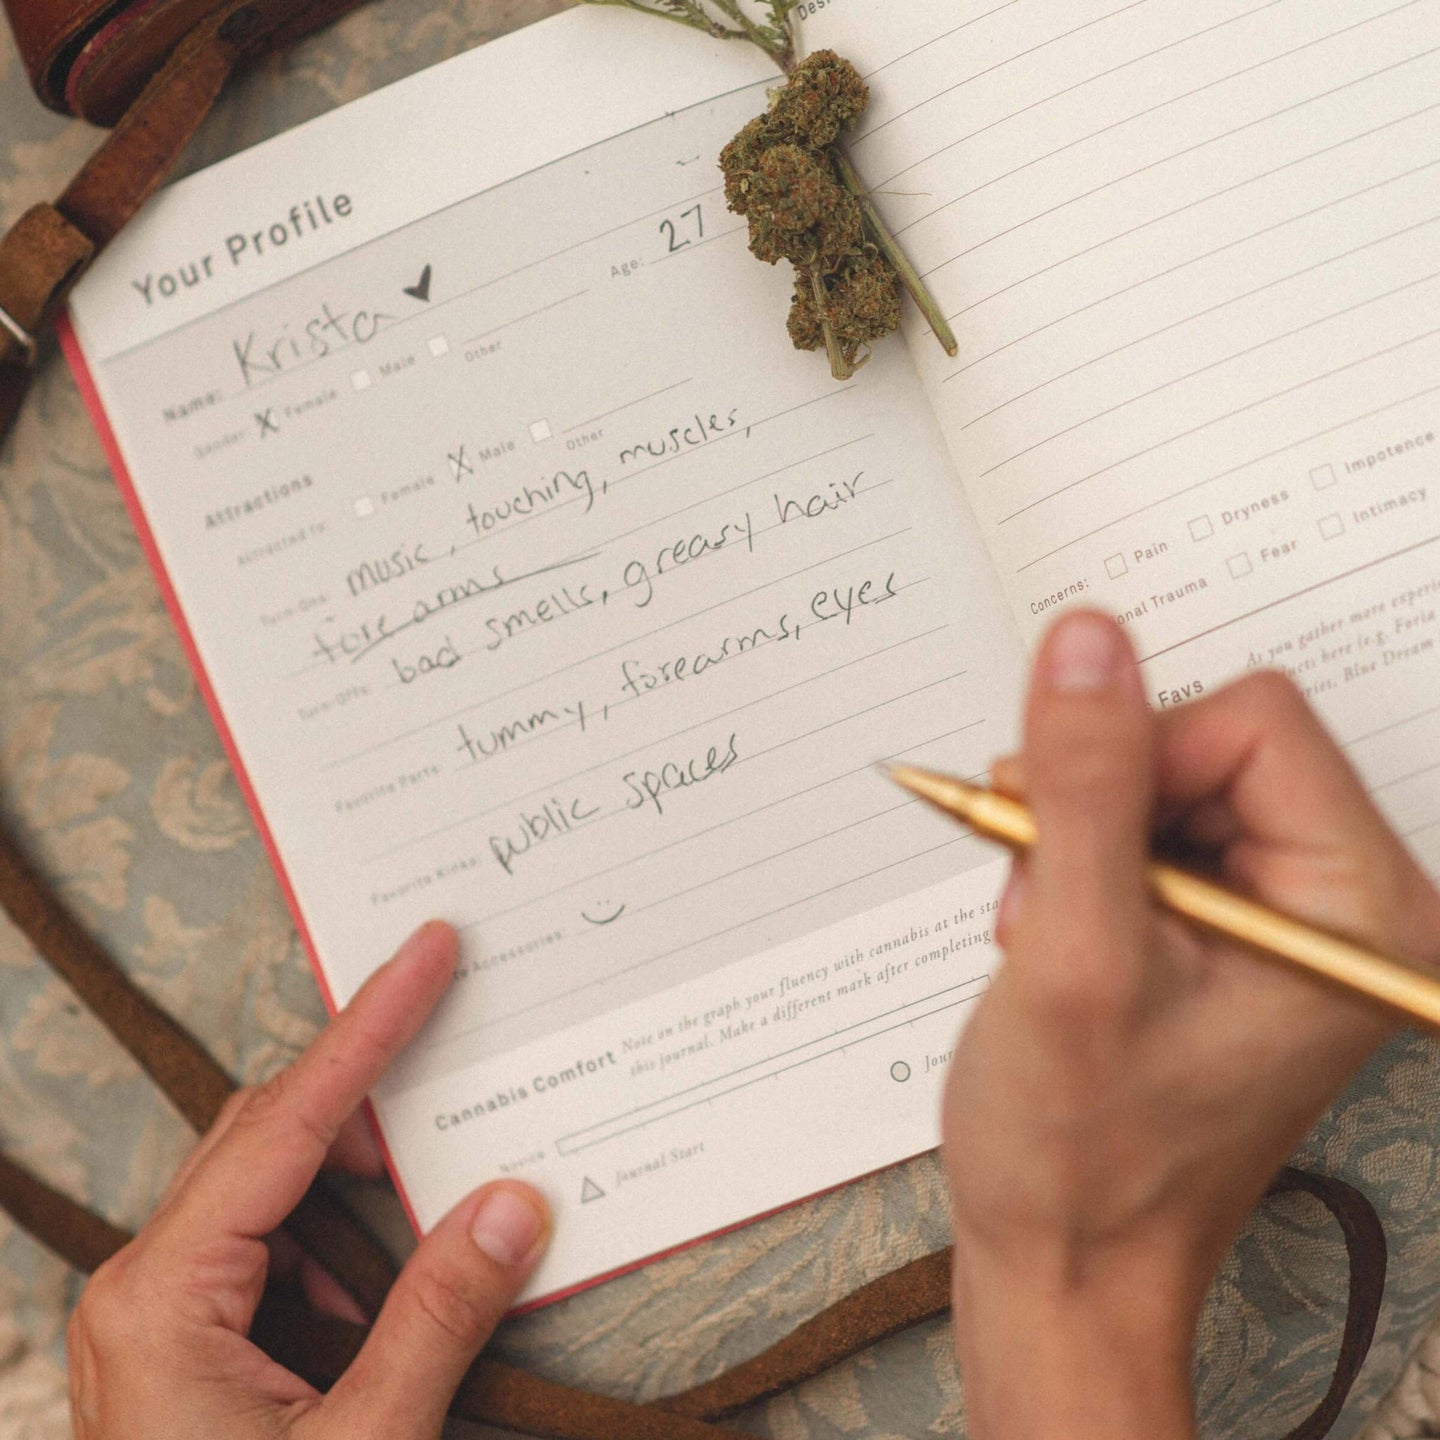 Your Profile
Name: Krista
Age: 27
Gender: X Female Male Other
Attractions
Attracted to: Female X Male Other
Turn-Ons: music, touching, muscles,
forearms
Turn-Offs: bad smells, greasy hair
Favorite Parts: tummy, forearms, eyes
Favorite Kinks: public spaces
Accessories:
Cannabis Comfort Note on the graph your fluency with cannabis at the
this journal. Make a different mark after completing
Novice
Journal Start
Concerns: Pain Dryness Impotence
Trauma Fear Intimacy
Favs As you gather more
here (e.g. Foria
Blue Dream